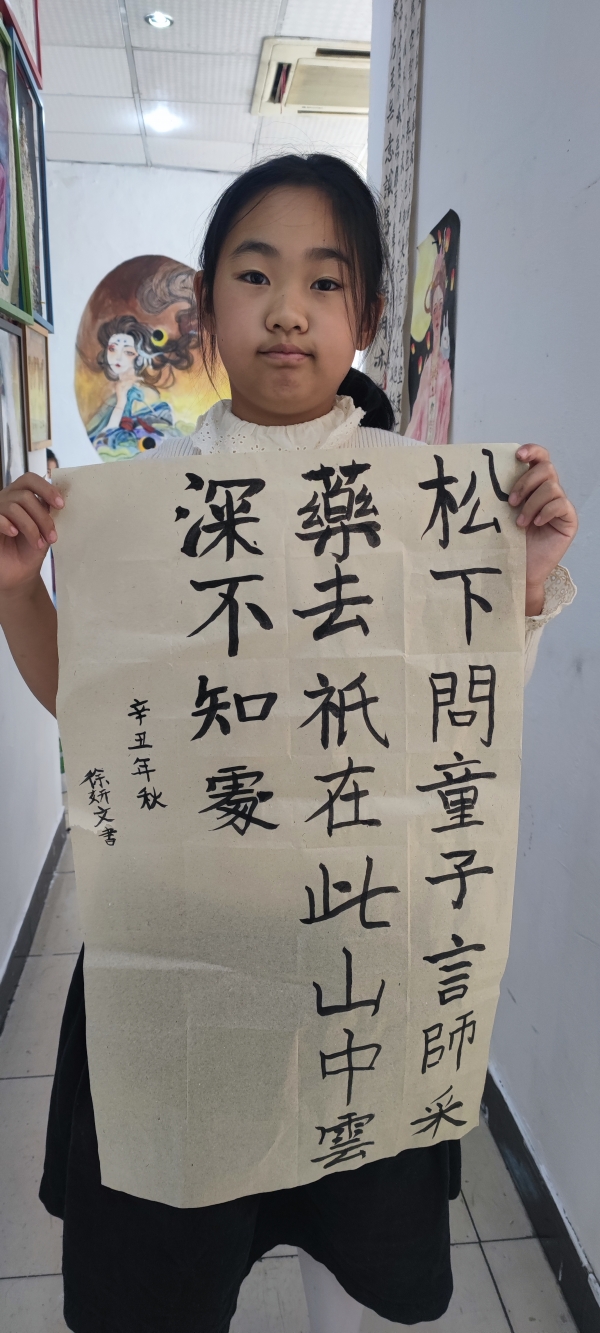 松下問童子言師采
藥去祇在此山中雲
深不知處
辛丑年秋
徐妍文書